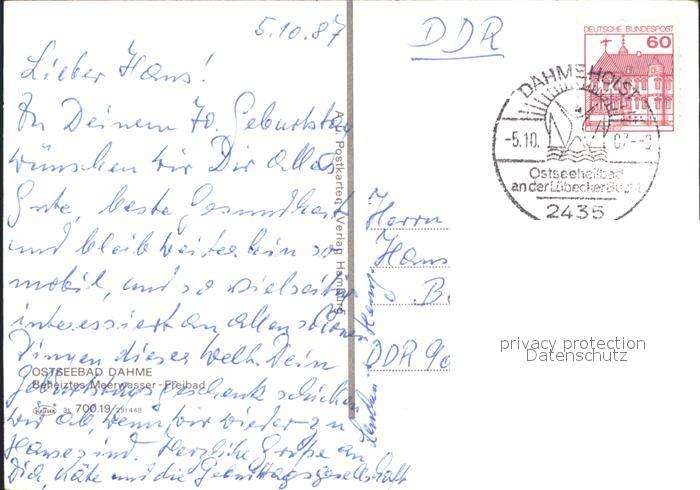 5.10.87
Lieber Hans!
Zu Deinem 70. Geburtstag
wünschen wir Dir alles
Gute, beste Gesundheit
und bleib weiterhin so
mobil, und so vielseitig
interessiert an allen schönen
Dingen dieser Welt. Dein
Geburtstagsgeschenk schicken
wir ab, wenn wir wieder zu
Hause sind. Herzliche Grüße an
Dich, Käte und die Geburtstagsgesellschaft
OSTSEEBAD DAHME
Beheiztes Meerwasser-Freibad
KRÜGER 31 700.19/ 251448
Postkarten-Verlag Hamburg
DDR
Herrn
Hans
B.
DDR 90
DEUTSCHE BUNDESPOST
60
DAHME HOLST
-5.10. 87--9
Ostseeheilbad
an der Lübecker Bucht
2435
privacy protection
Datenschutz